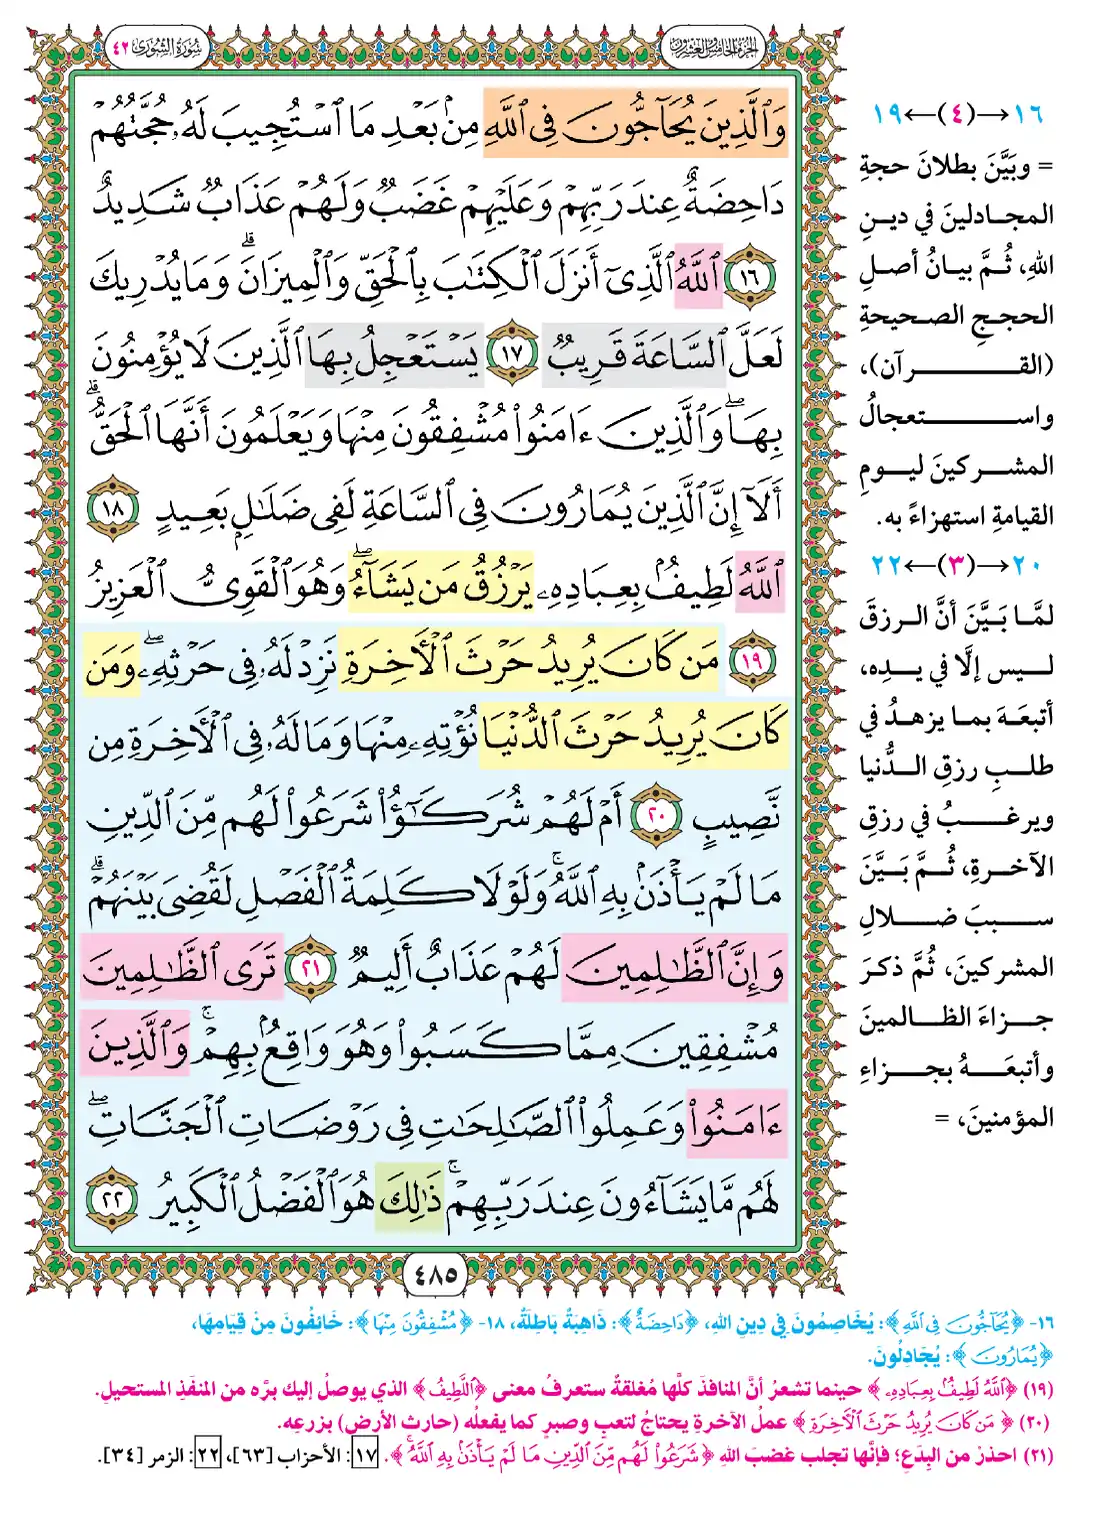 الجزء الخامس والعشرون
سورة الشورى ٤٢
وَٱلَّذِينَ يُحَآجُّونَ فِى ٱللَّهِ مِنۢ بَعْدِ مَا ٱسْتُجِيبَ لَهُۥ حُجَّتُهُمْ
دَاحِضَةٌ عِندَ رَبِّهِمْ وَعَلَيْهِمْ غَضَبٌ وَلَهُمْ عَذَابٌ شَدِيدٌ
١٦ ٱللَّهُ ٱلَّذِىٓ أَنزَلَ ٱلْكِتَٰبَ بِٱلْحَقِّ وَٱلْمِيزَانَ ۗ وَمَا يُدْرِيكَ
لَعَلَّ ٱلسَّاعَةَ قَرِيبٌ ١٧ يَسْتَعْجِلُ بِهَا ٱلَّذِينَ لَا يُؤْمِنُونَ
بِهَا ۖ وَٱلَّذِينَ ءَامَنُوا۟ مُشْفِقُونَ مِنْهَا وَيَعْلَمُونَ أَنَّهَا ٱلْحَقُّ ۗ
أَلَآ إِنَّ ٱلَّذِينَ يُمَارُونَ فِى ٱلسَّاعَةِ لَفِى ضَلَٰلٍۭ بَعِيدٍ ١٨
ٱللَّهُ لَطِيفٌۢ بِعِبَادِهِۦ يَرْزُقُ مَن يَشَآءُ ۖ وَهُوَ ٱلْقَوِىُّ ٱلْعَزِيزُ
١٩ مَن كَانَ يُرِيدُ حَرْثَ ٱلْأَخِرَةِ نَزِدْ لَهُۥ فِى حَرْثِهِۦ ۖ وَمَن
كَانَ يُرِيدُ حَرْثَ ٱلدُّنْيَا نُؤْتِهِۦ مِنْهَا وَمَا لَهُۥ فِى ٱلْأَخِرَةِ مِن
نَّصِيبٍ ٢٠ أَمْ لَهُمْ شُرَكَٰٓؤُا۟ شَرَعُوا۟ لَهُم مِّنَ ٱلدِّينِ
مَا لَمْ يَأْذَنۢ بِهِ ٱللَّهُ ۚ وَلَوْلَا كَلِمَةُ ٱلْفَصْلِ لَقُضِىَ بَيْنَهُمْ ۗ
وَإِنَّ ٱلظَّٰلِمِينَ لَهُمْ عَذَابٌ أَلِيمٌ ٢١ تَرَى ٱلظَّٰلِمِينَ
مُشْفِقِينَ مِمَّا كَسَبُوا۟ وَهُوَ وَاقِعٌۢ بِهِمْ ۗ وَٱلَّذِينَ
ءَامَنُوا۟ وَعَمِلُوا۟ ٱلصَّٰلِحَٰتِ فِى رَوْضَاتِ ٱلْجَنَّاتِ ۖ
لَهُم مَّا يَشَآءُونَ عِندَ رَبِّهِمْ ۚ ذَٰلِكَ هُوَ ٱلْفَضْلُ ٱلْكَبِيرُ ٢٢
٤٨٥
١٦→(٤)←١٩
= وبَيَّنَ بطلانَ حجةِ
المجادلينَ في دينِ
اللهِ، ثُمَّ بيانُ أصلِ
الحججِ الصحيحةِ
(القرآن)،
واستعجالُ
المشركينَ ليومِ
القيامةِ استهزاءً به.
٢٠→(٣)←٢٢
لمَّا بَيَّنَ أنَّ الرزقَ
ليس إلَّا في يدِه،
أتبعَهَ بما يزهدُ في
طلبِ رزقِ الدُّنيا
ويرغبُ في رزقِ
الآخرةِ، ثُمَّ بَيَّنَ
سببَ ضلالِ
المشركينَ، ثُمَّ ذكرَ
جزاءَ الظالمينَ
وأتبعَهُ بجزاءِ
المؤمنينَ، =
١٦- ﴿يُحَآجُّونَ فِى ٱللَّهِ﴾: يُخَاصِمُونَ فِي دِينِ اللهِ، ﴿دَاحِضَةٌ﴾: ذَاهِبَةٌ بَاطِلَةٌ، ١٨- ﴿مُشْفِقُونَ مِنْهَا﴾: خَائِفُونَ مِنْ قِيَامِهَا،
﴿يُمَارُونَ﴾: يُجَادِلُونَ.
(١٩) ﴿ٱللَّهُ لَطِيفٌۢ بِعِبَادِهِۦ﴾ حينما تشعرُ أنَّ المنافذَ كلَّها مُغلقةٌ ستعرفُ معنى ﴿اللَّطِيفُ﴾ الذي يوصلُ إليك برَّه من المنفَذِ المستحيلِ.
(٢٠) ﴿مَن كَانَ يُرِيدُ حَرْثَ ٱلْأَخِرَةِ﴾ عملُ الآخرةِ يحتاجُ لتعبٍ وصبرٍ كما يفعلُه (حارث الأرضِ) بزرعِه.
(٢١) احذرْ من البِدَعِ؛ فإنَّها تجلب غضبَ اللهِ ﴿شَرَعُوا۟ لَهُم مِّنَ ٱلدِّينِ مَا لَمْ يَأْذَنۢ بِهِ ٱللَّهُ ۚ﴾. ١٧: الأحزاب [٦٣]، ٢٢: الزمر [٣٤].